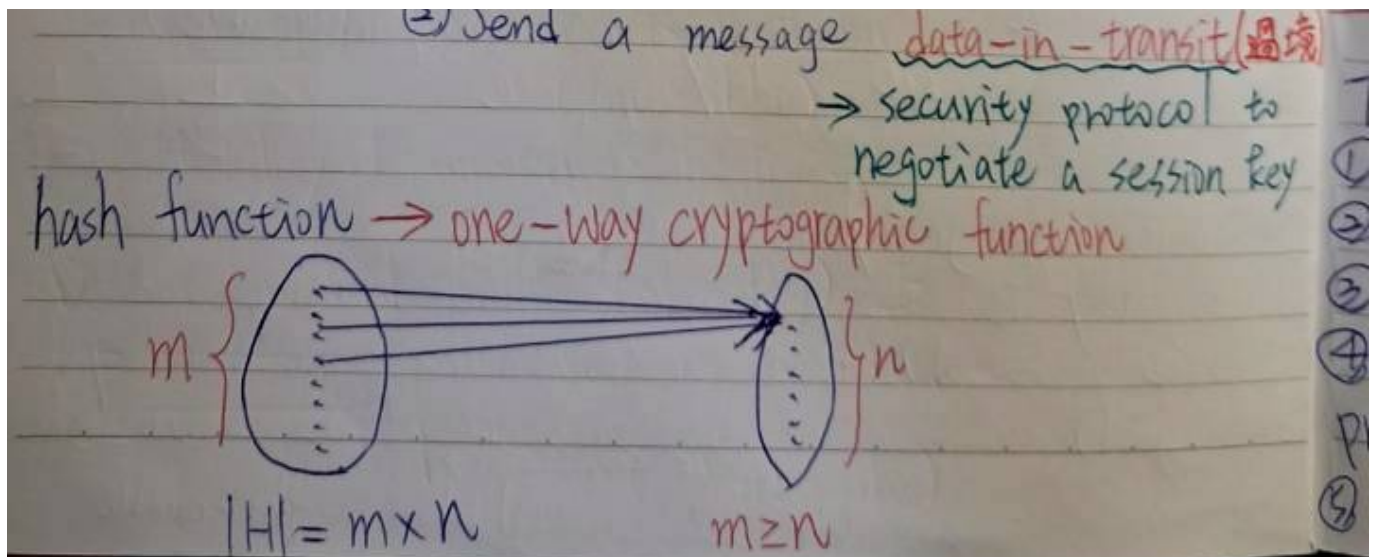 ② Send a message data-in-transit(過境
→ security protocol to
negotiate a session key
hash function → one-way cryptographic function
m
n
|H| = m×n
m≥n
①
②
③
④
⑤